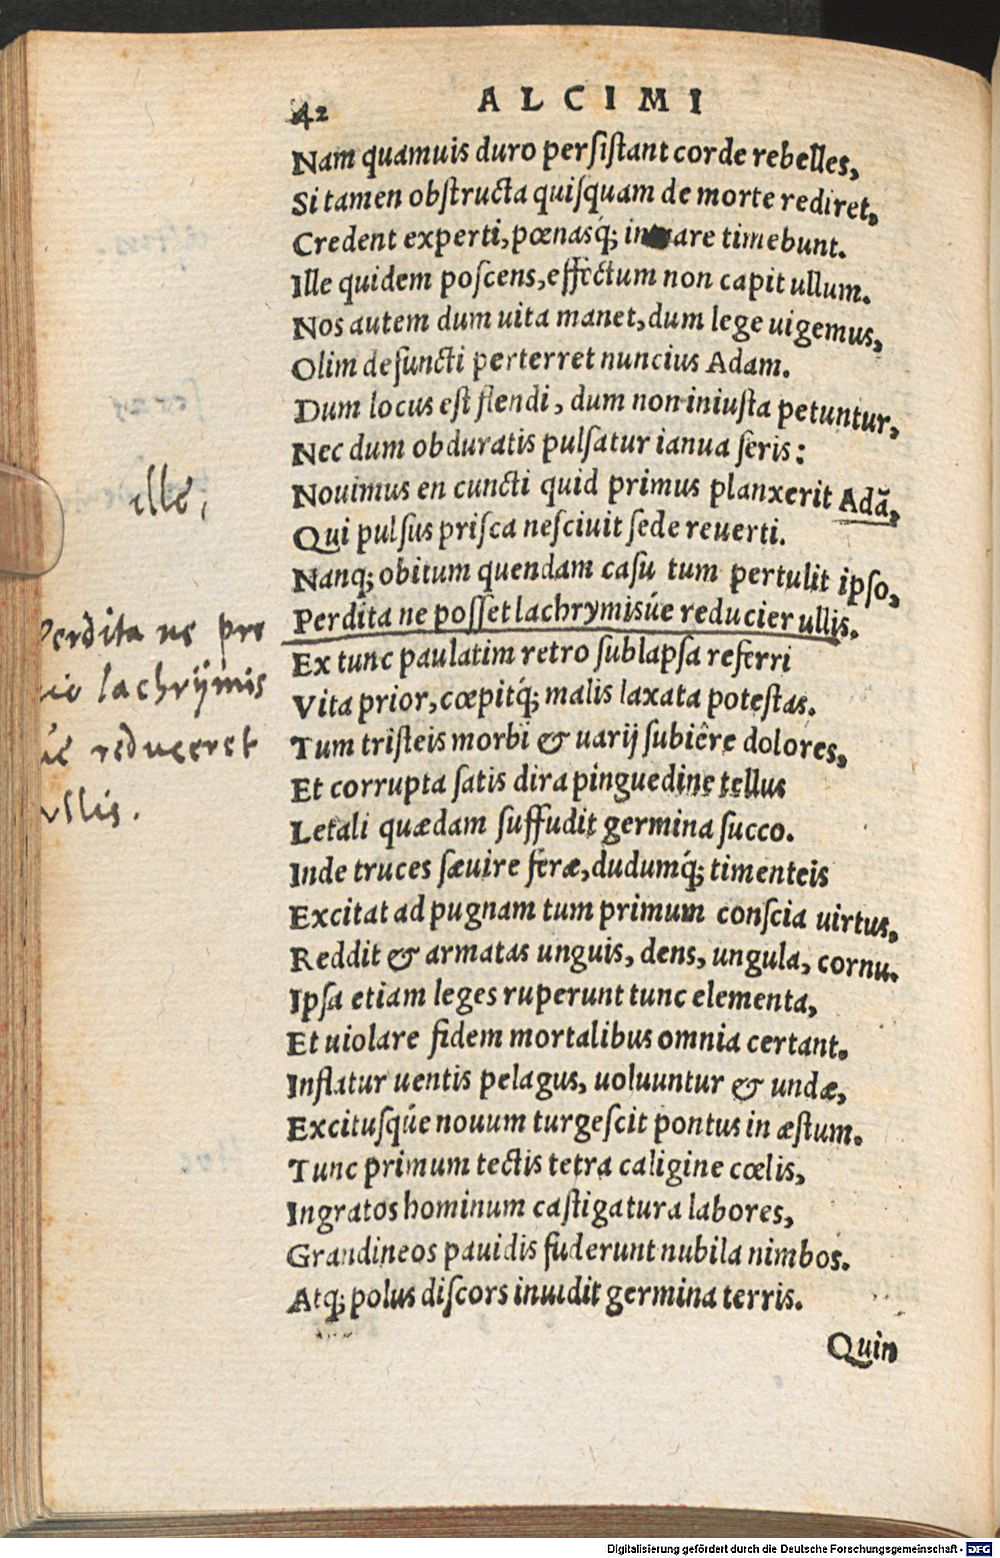 42 ALCIMI
Nam quamuis duro persistant corde rebelles,
Si tamen obstructa quisquam de morte rediret,
Credent experti, pœnasq́; are timebunt.
Ille quidem poscens, effectum non capit ullum.
Nos autem dum uita manet, dum lege uigemus,
Olim defuncti perterret nuncius Adam.
Dum locus est flendi, dum non iniusta petuntur,
Nec dum obduratis pulsatur ianua seris:
Nouimus en cuncti quid primus planxerit Adã,
ille,
Qui pulsus prisca nesciuit sede reuerti.
Nanq; obitum quendam casu tum pertulit ipso,
Perdita ne posset lachrymisúe reducier ullis.
Perdita ne pre
lachrÿmis
úe reduceret
ullis.
Ex tunc paulatim retro sublapsa referri
Vita prior, cœpitq́; malis laxata potestas.
Tum tristeis morbi & uarij subiêre dolores,
Et corrupta satis dira pinguedine tellus
Letali quædam suffudit germina succo.
Inde truces sæuire feræ, dudumq́; timenteis
Excitat ad pugnam tum primum conscia uirtus,
Reddit & armatas unguis, dens, ungula, cornu.
Ipsa etiam leges ruperunt tunc elementa,
Et uiolare fidem mortalibus omnia certant.
Inflatur uentis pelagus, uoluuntur & undæ,
Excitusq́ue nouum turgescit pontus in æstum.
Tunc primum tectis tetra caligine cœlis,
Ingratos hominum castigatura labores,
Grandineos pauidis fuderunt nubila nimbos.
Atq; polus discors inuidit germina terris.
Quin
Digitalisierung gefördert durch die Deutsche Forschungsgemeinschaft - DFG